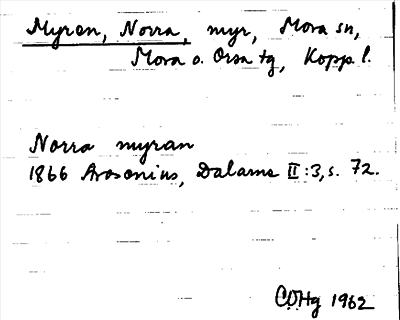 Myran, Norra, myr, Mora sn,
Mora o. Orsa tg, Kopp. l.
Norra myran
1866 Arosenius, Dalarne II:3, s. 72.
COHg 1962